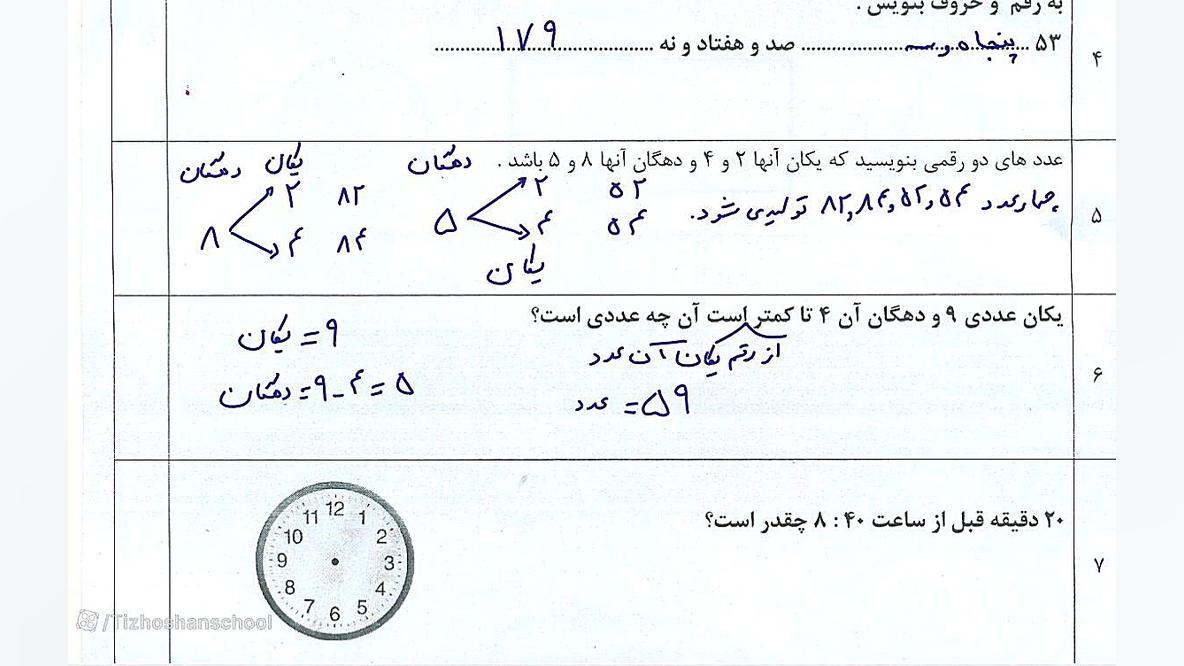 به رقم و حروف بنویس .
۵۳ ...پنجاه و سه................... صد و هفتاد و نه ...........۱۷۹...........
۴
عدد های دو رقمی بنویسید که یکان آنها ۲ و ۴ و دهگان آنها ۸ و ۵ باشد .
چهار عدد ۵۴ و ۵۲ و ۸۴ و ۸۲ تولید می شود.
دهگان
۲ ۵۲
۵
۴ ۵۴
یکان
دهگان یکان
۲ ۸۲
۸
۴ ۸۴
۵
یکان عددی ۹ و دهگان آن ۴ تا کمتر است آن چه عددی است؟
از رقم یکان آن عدد
عدد = ۵۹
یکان = ۹
دهگان = ۹ - ۴ = ۵
۶
۲۰ دقیقه قبل از ساعت ۴۰ : ۸ چقدر است؟
12
1
2
3
4
5
6
7
8
9
10
11
۷
/Tizhoshanschool